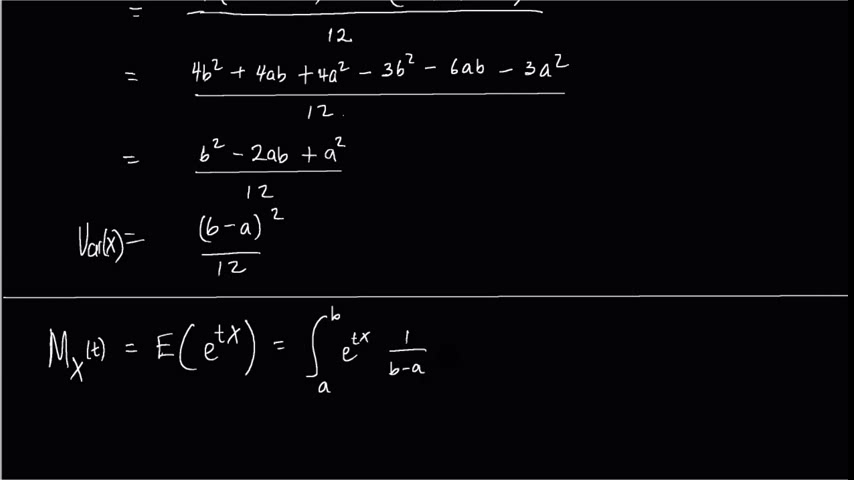 =
12
= 4b² + 4ab + 4a² - 3b² - 6ab - 3a²
12.
= b² - 2ab + a²
12
Var(x) = (b-a)²
12
M_X(t) = E(e^{tX}) = ∫_a^b e^{tx} 1/(b-a)